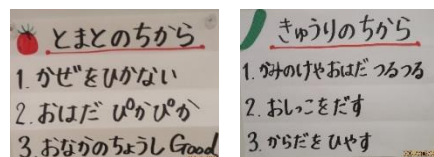 とまとのちから
1. かぜをひかない
2. おはだ ぴかぴか
3. おなかのちょうし Good
きゅうりのちから
1. かみのけやおはだ つるつる
2. おしっこをだす
3. からだを ひやす